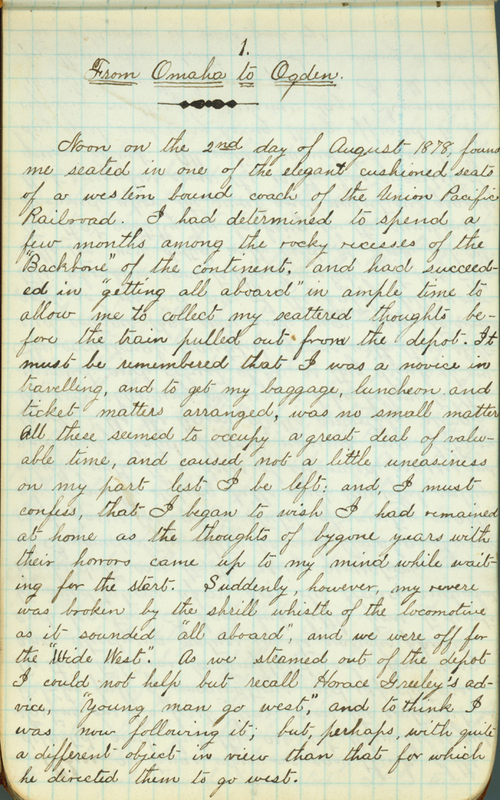 1.
From Omaha to Ogden.
Noon on the 2nd day of August 1878, found
me seated in one of the elegant cushioned seats
of a western bound coach of the Union Pacific
Railroad. I had determined to spend a
few months among the rocky recesses of the
"Backbone" of the continent, and had succeed-
ed in "getting all aboard" in ample time to
allow me to collect my scattered thoughts be-
fore the train pulled out from the depot. It
must be remembered that I was a novice in
travelling, and to get my baggage, luncheon and
ticket matters arranged, was no small matter
All these seemed to occupy a great deal of valu-
able time, and caused not a little uneasiness
on my part lest I be left; and, I must
confess, that I began to wish I had remained
at home as the thoughts of bygone years with
their horrors came up to my mind while wait-
ing for the start. Suddenly, however, my revere
was broken by the shrill whistle of the locomotive
as it sounded "all aboard", and we were off for
the "Wide West". As we steamed out of the depot
I could not help but recall Horace Greeley's ad-
vice, "Young man go west," and to think I
was now following it; but, perhaps, with quite
a different object in view than that for which
he directed them to go west.